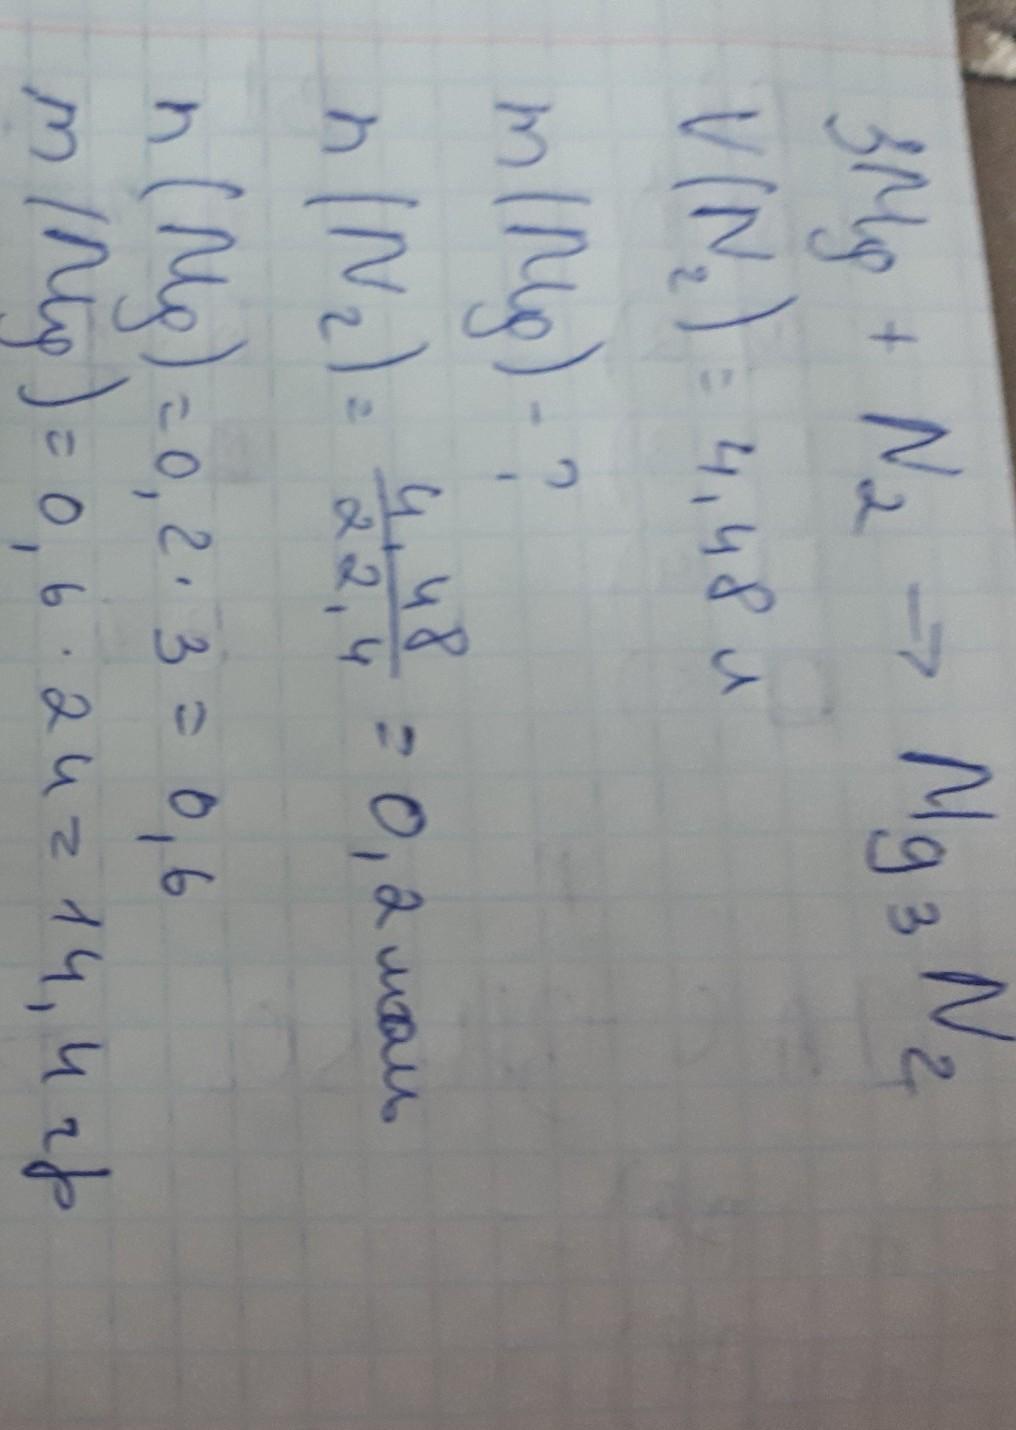 3Mg + N2 → Mg3N2
V(N2) = 4,48 л
m(Mg) - ?
n(N2) = 4,48/22,4 = 0,2 моль
n(Mg) = 0,2 · 3 = 0,6
m(Mg) = 0,6 · 24 = 14,4 гр